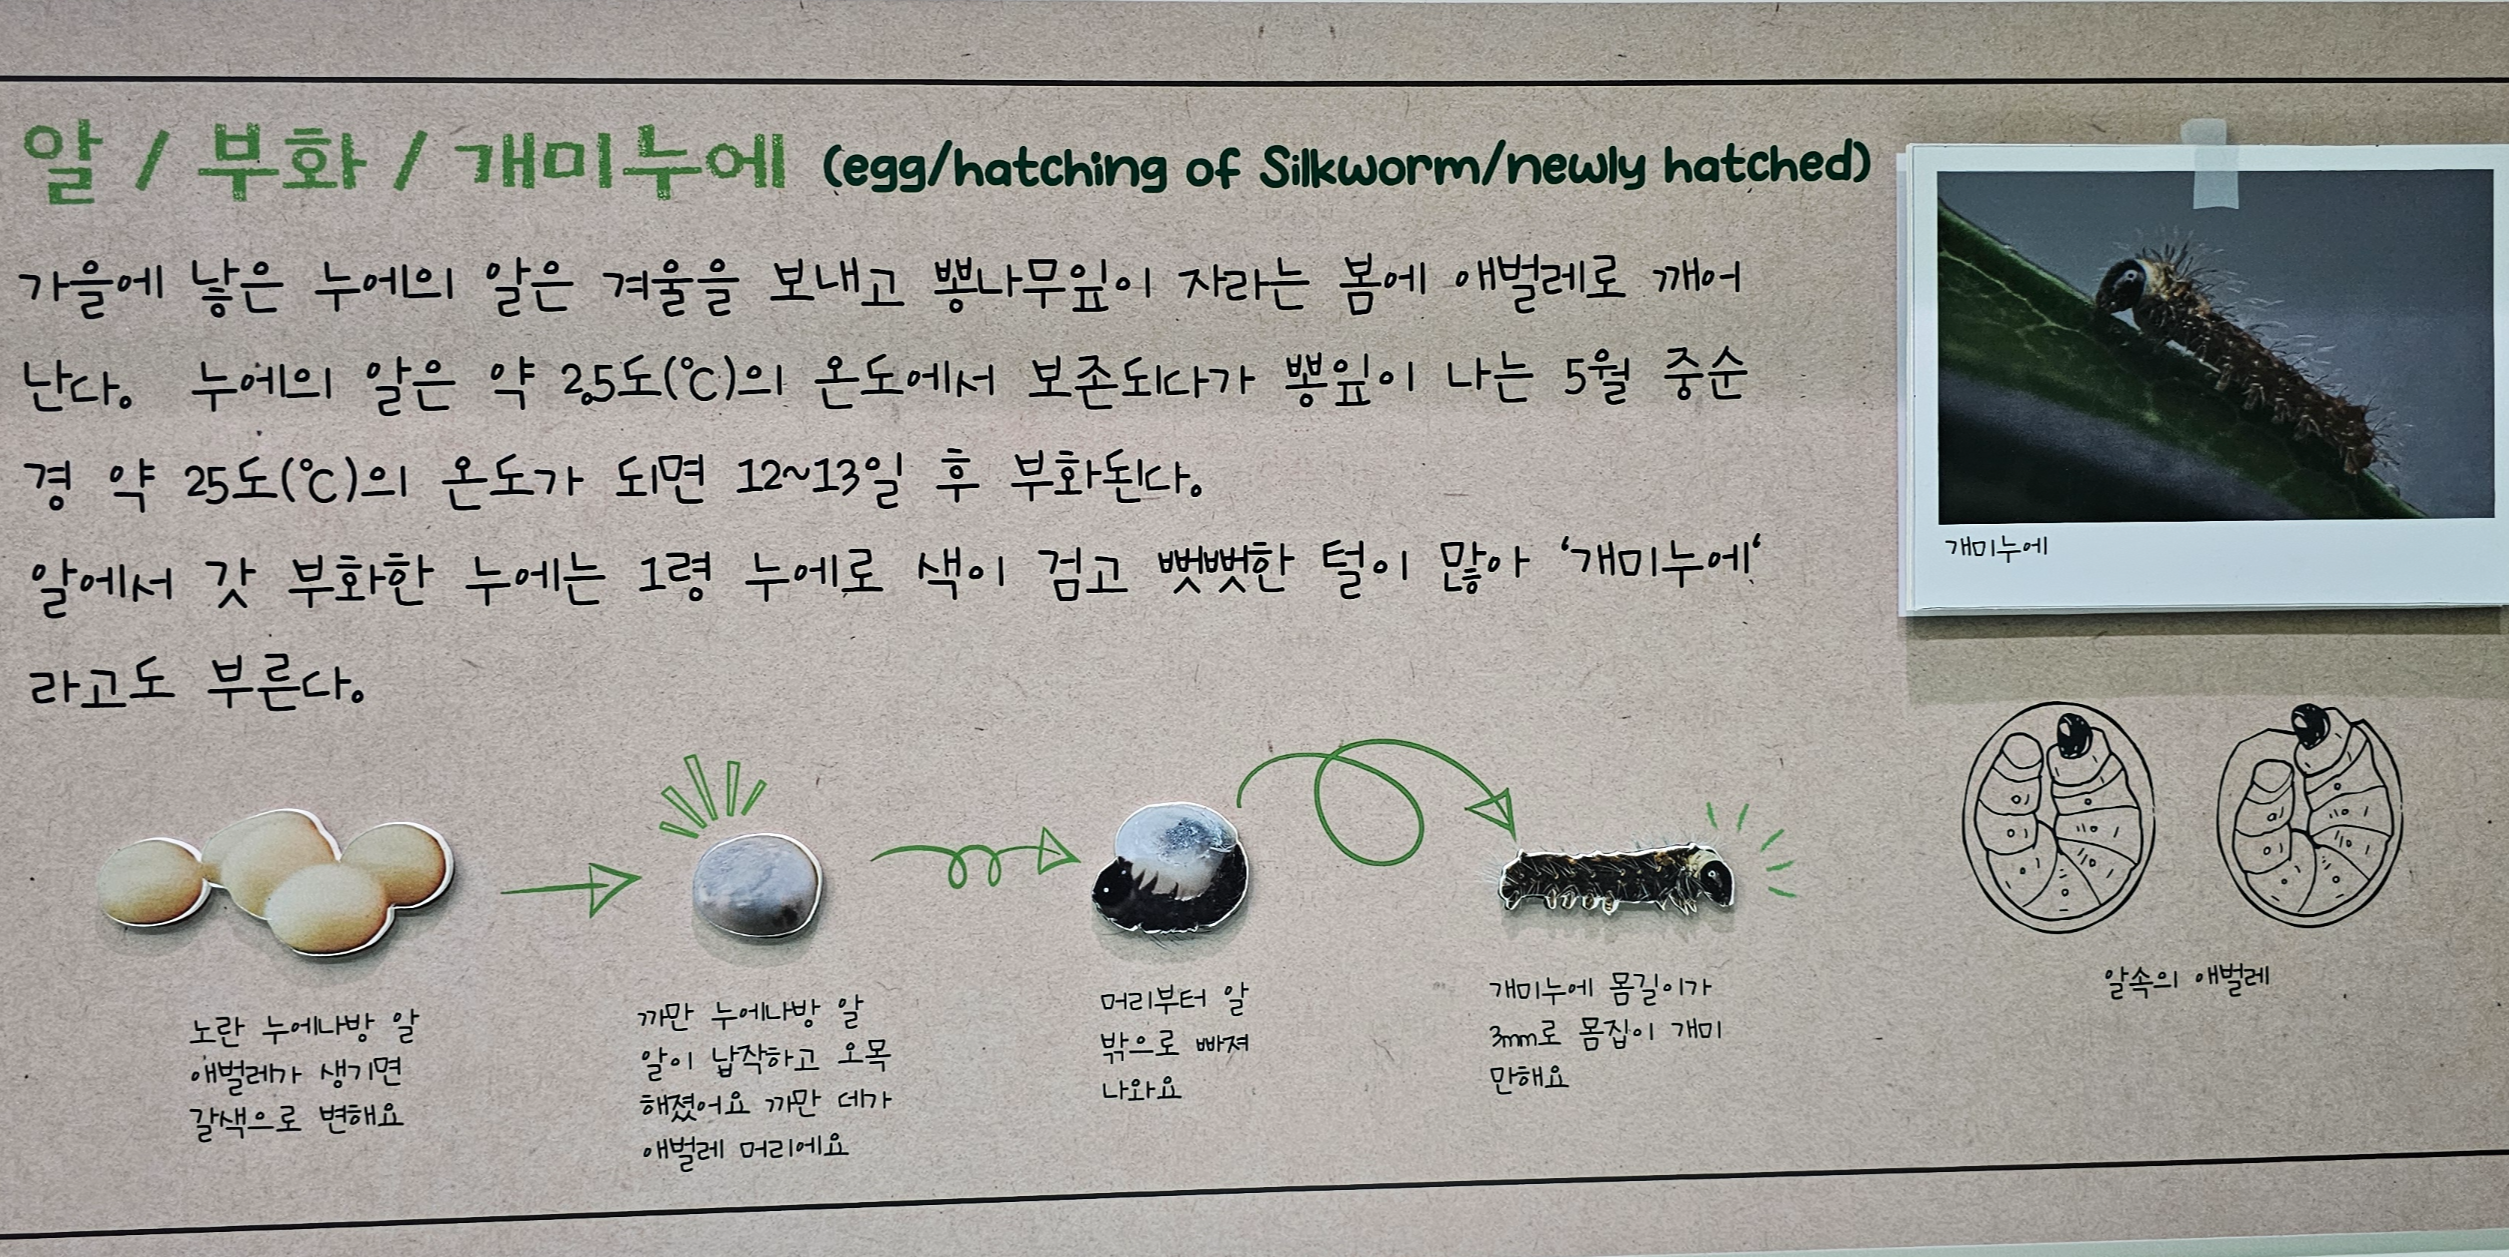 알 / 부화 / 개미누에 (egg/hatching of Silkworm/newly hatched)
가을에 낳은 누에의 알은 겨울을 보내고 뽕나무잎이 자라는 봄에 애벌레로 깨어
난다. 누에의 알은 약 2.5도(℃)의 온도에서 보존되다가 뽕잎이 나는 5월 중순
경 약 25도(℃)의 온도가 되면 12~13일 후 부화된다.
알에서 갓 부화한 누에는 1령 누에로 색이 검고 뻣뻣한 털이 많아 ‘개미누에‘
라고도 부른다.
개미누에
노란 누에나방 알
애벌레가 생기면
갈색으로 변해요
까만 누에나방 알
알이 납작하고 오목
해졌어요 까만 데가
애벌레 머리에요
머리부터 알
밖으로 빠져
나와요
개미누에 몸길이가
3mm로 몸집이 개미
만해요
알속의 애벌레